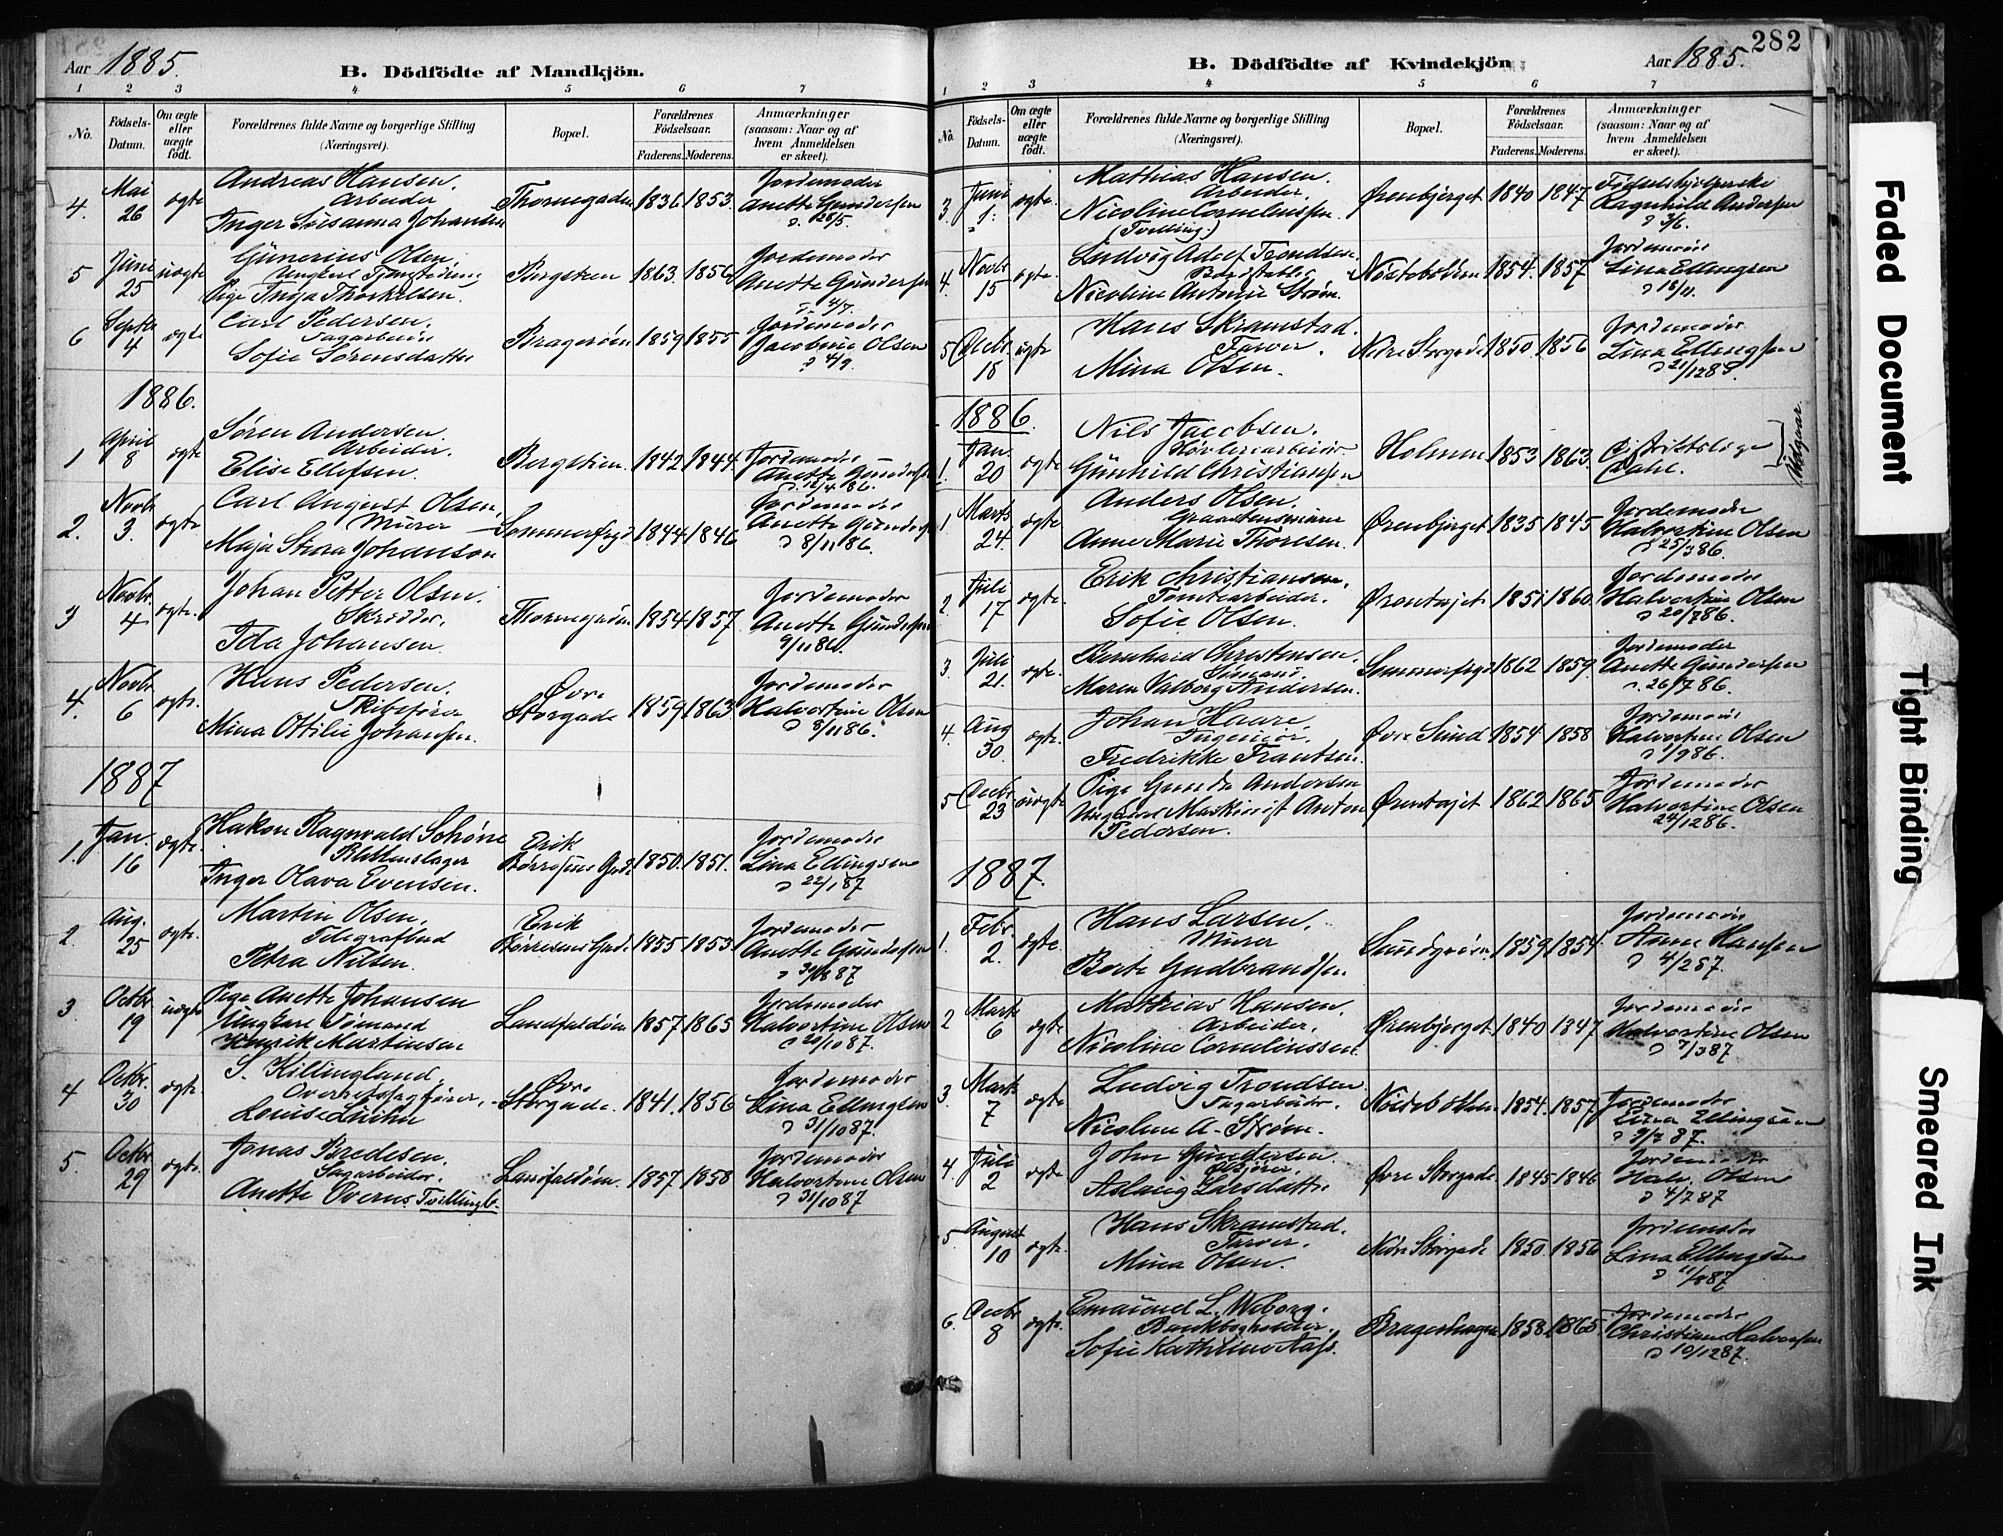 Aar 1885.
B. Dödfödte af Mandkjön.
1 2 3 4 5 6 7
No.
Födsels-Datum.
Om ægte eller uægte födt.
Forældrenes fulde Navne og borgerlige Stilling (Næringsvei).
Bopæl.
Forældrenes Födselsaar.
Faderens. Moderens.
Anmærkninger (saasom: Naar og af hvem Anmeldelsen er skeet).
4. Mai 26 ægte Andreas Hansen, Arbeider
Inger Susanna Johansen
Thornegaden 1836 1853 Jordemoder Anette Gundersen 26/5.
5 Juni 25 uægte Gunerius Olsen,
Ungkarl
Pige Inga Thorkelsen.
Bergsteen 1863. 1856 Jordemoder Anette Gundersen 4/7.
6 Septbr 4 ægte Carl Pedersen,
Sagarbeider
Sofie Sørensdatter
Bragerøen 1859 1855 Jordemoder Jacobine Olsen 4/9.
1886.
1 April 8 ægte Søren Andersen. Arbeider.
Elise Ellefsen.
Bergstien 1842 1844. Jordemoder Anette Gundersen 12/4 86.
2. Novbr 3. ægte Carl August Olsen, Murer
Maja Stina Johanson
Sommerfryd 1844 1846 Jordemoder Anette Gundersen 8/11 86.
3 Novbr 4 ægte. Johan Petter Olsen. Skrædder,
Ida Johansen.
Thornegaden 1854 1857. Jordemoder Anette Gundersen 9/11 86.
4. Novbr 6 ægte. Hans Pedersen. Skibsfører
Mina Ottilie Johansen.
Øvre Storgade 1859 1863 Jordemoder Halvorline Olsen 8/11 86.
1887
1. Jan. 16 ægte. Hakon Ragnvald Schöne
Blikkenslager
Inger Olava Evensen.
Erik Børresens Gade 1850. 1851. Jordemoder Lina Ellingsen 22/1 87
2. Aug. 25 ægte. Martin Olsen, Telegrafbud
Petra Nilsen.
Erik Børresens Gade. 1855 1853 Jordemoder Anette Gundersen 30/8 87
3 Octbr 19 uægte Pige Anette Johansen
Ungkarl Sømand
Henrik Martinsen
Landfaldøen 1857 1865 Jordemoder Halvorline Olsen 20/10 87.
4 Octbr. 30 ægte. S. Killingland,
Overretssagfører,
Louise
Øvre Storgade. 1841. 1856 Jordemoder Lina Ellingsen 31/10 87.
5. Octbr 29 ægte. Jonas Bredesen. Sagarbeider.
Anette Overn. Tvillingb.
Landfaldøen. 1857 1858 Jordemoder Halvorline Olsen 31/10 87
282
B. Dödfödte af Kvindekjön.
Aar 1885.
1 2 3 4 5 6 7
No.
Födsels-Datum.
Om ægte eller uægte födt.
Forældrenes fulde Navne og borgerlige Stilling (Næringsvei).
Bopæl.
Forældrenes Födselsaar.
Faderens. Moderens.
Anmærkninger (saasom: Naar og af hvem Anmeldelsen er skeet).
3 Juni 1. ægte Mathias Hansen. Arbeider,
Nicoline Corneliussen.
(Tvilling.)
Ørenbjerget 1840 1847 Fødselshjelperske Ragnhild Andersen 3/6.
4. Novbr 15 ægte. Ludvig Adolf Trondsen
Nicoline Antonie Strøm.
1854. 1857 Jordemoder Lina Ellingsen 18/11.
5 Decbr 18 ægte Hans Skramstad. Farver.
Mina Olsen.
Nedre Storgade 1850. 1856 Jordemoder Lina Ellingsen 21/12 85.
1886.
1. Jan. 20 ægte Nils Jacobsen. Høvleriarbeider
Gunhild Christiansen
Holmen 1853 1863. Distriktslæge Dahl. Udgaar.
1 Marts 24. ægte Anders Olsen.
Anne Marie Thoresen.
Ørenbjerget 1835 1845 Jordemoder Halvorline Olsen 25/3 86.
2. Juli 17 ægte. Erik Christiansen, Tomtearbeider.
Sofie Olsen.
1851 1860 Jordemoder Halvorline Olsen 20/7 86.
3. Juli 21. ægte. Bernhard Christensen. Sømand.
Maren Valborg Andersen.
Sommerfryd 1862 1859. Jordemoder Anette Gundersen 26/7 86.
4. Aug 30 ægte. Johan Kaare Ingeniør
Fredrikke Frantsen.
Øvre Sund 1854 1858 Jordemoder Halvorline Olsen 1/9 86.
5 Decbr 23 uægte Pige Gunda Andersen
Ungkarl Maskinist Anton
Pedersen.
1862 1865 Jordemoder Halvorline Olsen 24/12 86.
1887.
1. Febr 2. ægte. Hans Larsen. Murer
Berte Gudbrandsen.
1859 1854. Jordemoder Anne Hansen 4/2 87.
2 Marts 6 ægte. Mathias Hansen. Arbeider,
Nicoline Corneliussen.
Ørenbjerget 1840 1847 Jordemoder Halvorline Olsen 7/3 87
3 Marts 7 ægte Ludvig Trondsen Sagarbeider.
Nicoline A. Strøm.
1854. 1857 Jordemoder Lina Ellingsen 9/3 87.
4 Juli 2 ægte John Gundersen.
Aslaug Larsdatter
Øvre Storgade 1845 1846 Jordemoder Halv. Olsen 4/7 87
5 August 10 ægte. Hans Skramstad. Farver.
Mina Olsen.
Nedre Storgade 1850. 1856 Jordemoder Lina Ellingsen 11/8 87
6. Decbr 8 ægte. Emanuel L. Wiborg.
Bankbogholder.
Sofie Kathrine Aass.
Bragernes 1858. 1865 Jordemoder Christiane Halvorsen 10/12 87.
Faded Document
Tight Binding
Smeared Ink